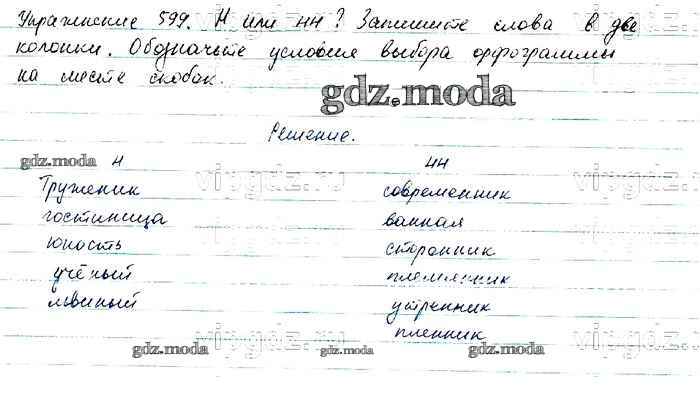 Упражнение 599. Н или НН? Запишите слова в две
колонки. Обозначьте условия выбора орфограммы
на месте скобок.
gdz.moda
Решение.
gdz.moda Н НН
Труженик современник
гостиница ванная
юность сторонник
учёный племянник
львиный утренник
пленник
gdz.moda gdz.moda gdz.moda